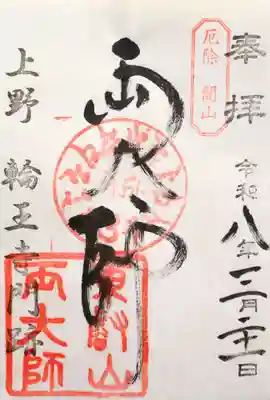 奉拝
厄除 開山
令和八年三月二十一日
両大師
東叡山
両大師
上野 輪王寺門跡